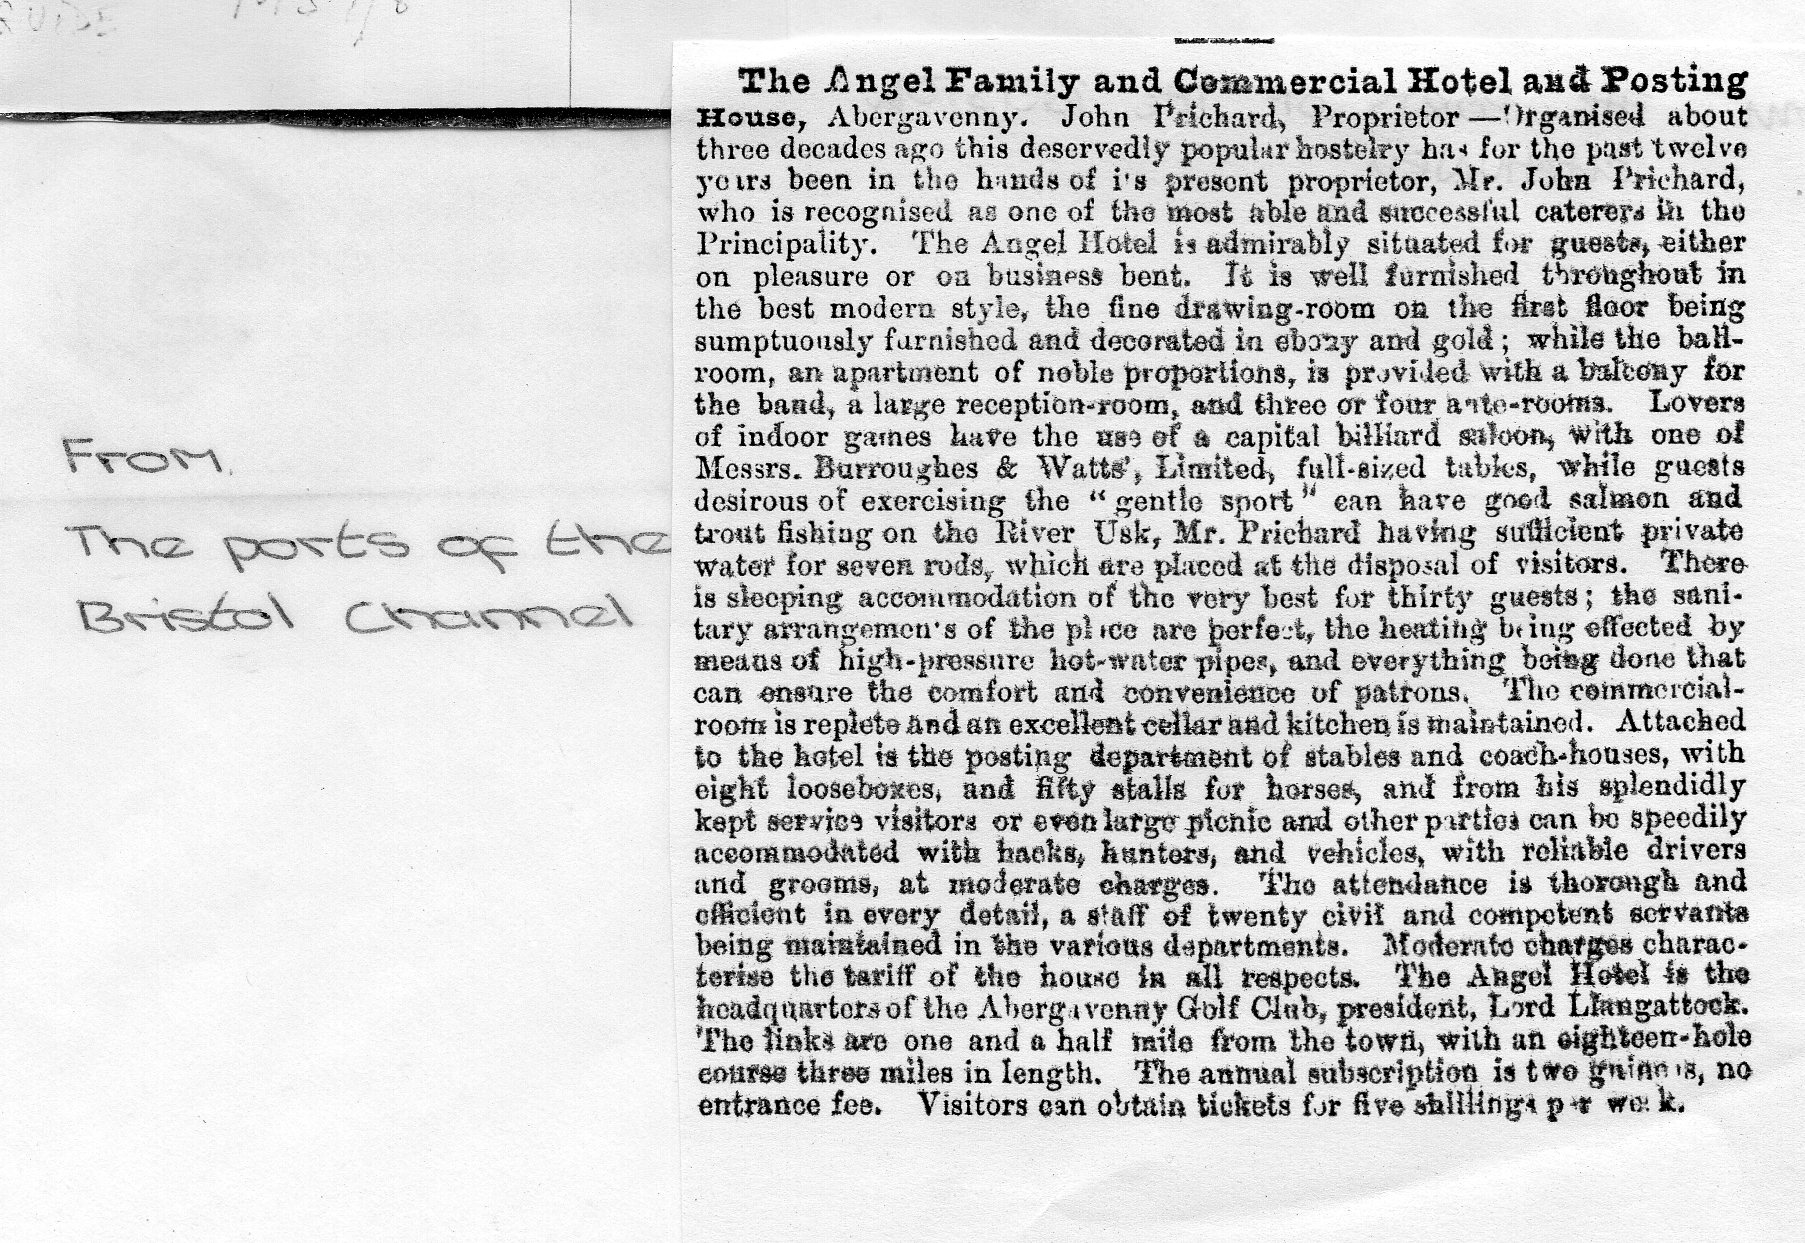 From
The ports of the
Bristol Channel
The Angel Family and Commercial Hotel and Posting
House, Abergavenny. John Prichard, Proprietor —Organised about
three decades ago this deservedly popular hostelry has for the past twelve
years been in the hands of its present proprietor, Mr. John Prichard,
who is recognised as one of the most able and successful caterers in the
Principality. The Angel Hotel is admirably situated for guests, either
on pleasure or on business bent. It is well furnished throughout in
the best modern style, the fine drawing-room on the first floor being
sumptuously furnished and decorated in ebony and gold; while the ball-
room, an apartment of noble proportions, is provided with a balcony for
the band, a large reception-room, and three or four ante-rooms. Lovers
of indoor games have the use of a capital billiard saloon, with one of
Messrs. Burroughes & Watts', Limited, full-sized tables, while guests
desirous of exercising the "gentle sport" can have good salmon and
trout fishing on the River Usk, Mr. Prichard having sufficient private
water for seven rods, which are placed at the disposal of visitors. There
is sleeping accommodation of the very best for thirty guests; the sani-
tary arrangements of the place are perfect, the heating being effected by
means of high-pressure hot-water pipes, and everything being done that
can ensure the comfort and convenience of patrons. The commercial-
room is replete and an excellent cellar and kitchen is maintained. Attached
to the hotel is the posting department of stables and coach-houses, with
eight looseboxes, and fifty stalls for horses, and from his splendidly
kept service visitors or even large picnic and other parties can be speedily
accommodated with hacks, hunters, and vehicles, with reliable drivers
and grooms, at moderate charges. The attendance is thorough and
efficient in every detail, a staff of twenty civil and competent servants
being maintained in the various departments. Moderate charges charac-
terise the tariff of the house in all respects. The Angel Hotel is the
headquarters of the Abergavenny Golf Club, president, Lord Llangattock.
The links are one and a half mile from the town, with an eighteen-hole
course three miles in length. The annual subscription is two guineas, no
entrance fee. Visitors can obtain tickets for five shillings per week.